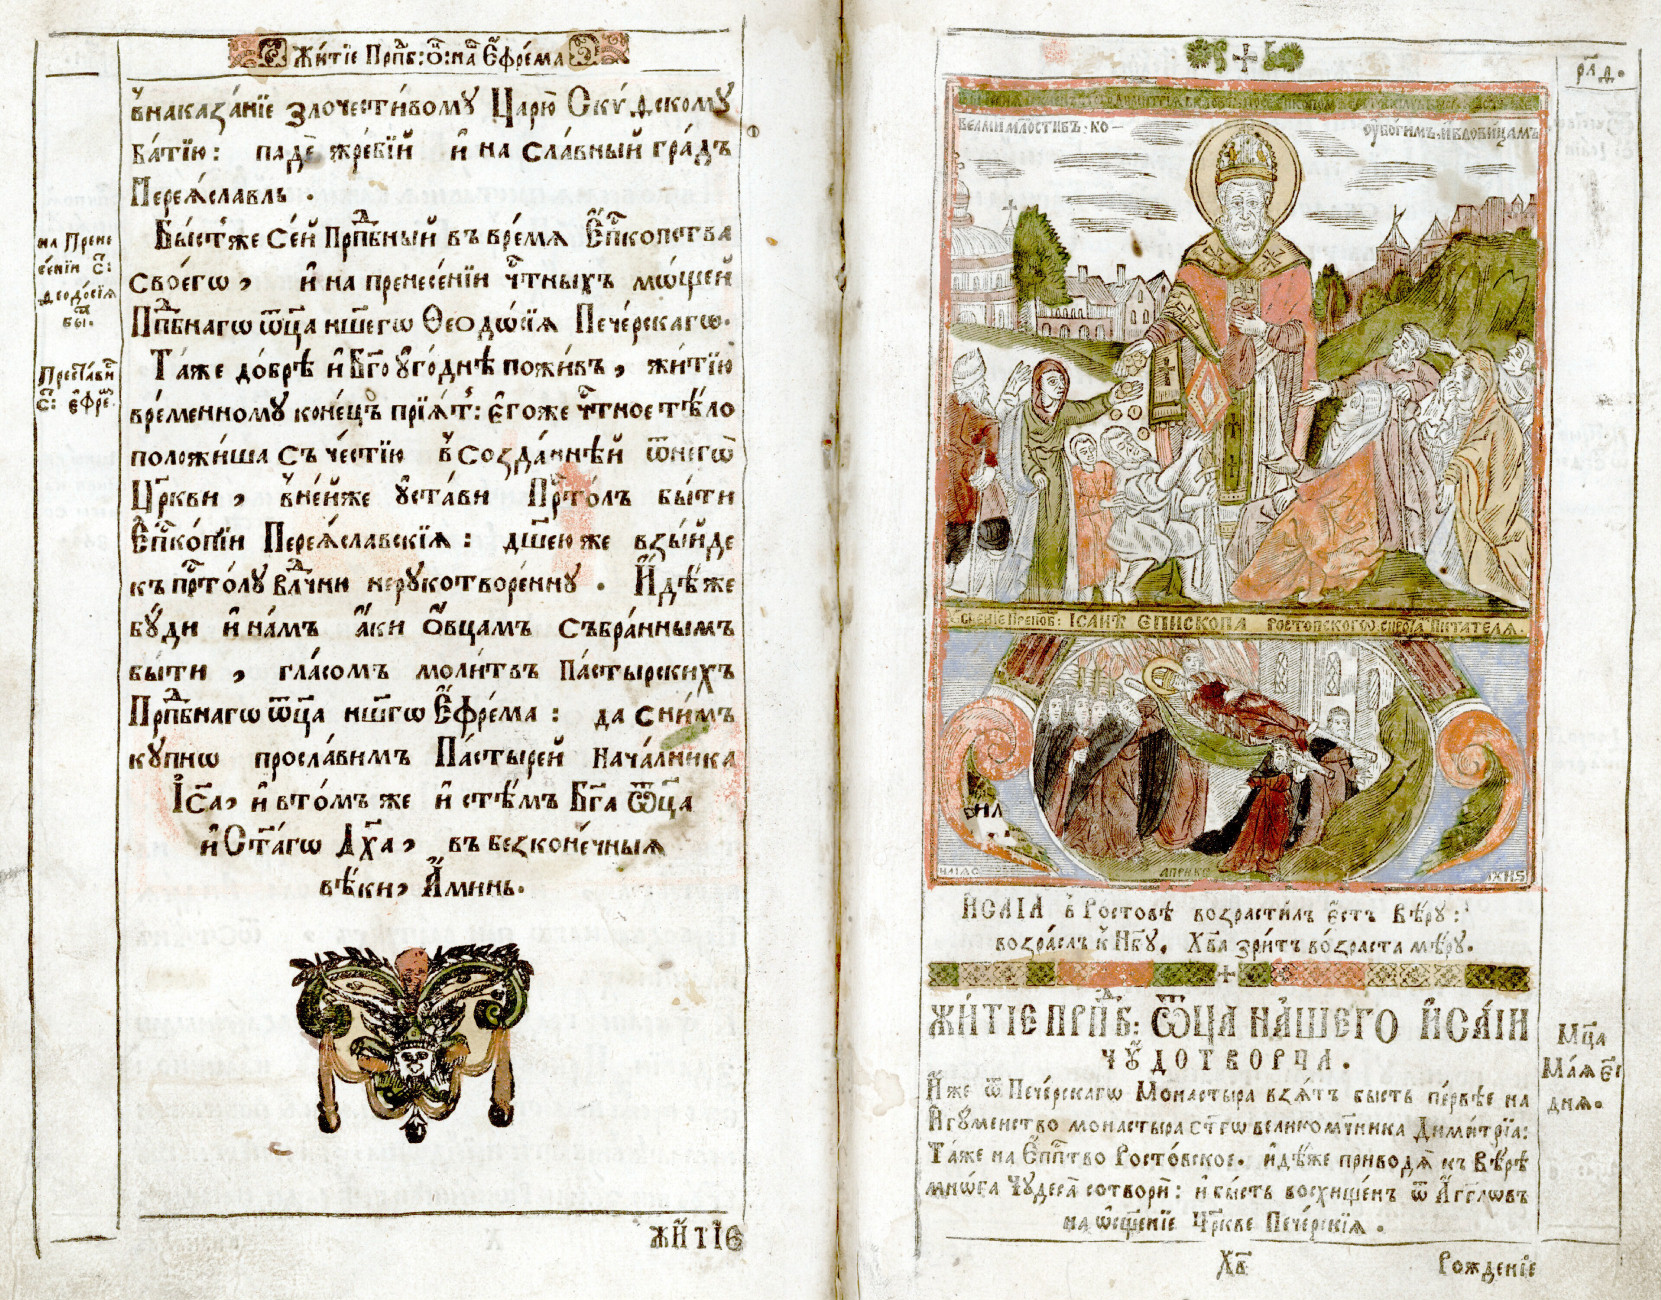 Жи́тїе Прпⷣб: ѻ҃: на҃ Е҆фре́ма
в̾наказа́нїе злочести́вому Царю̀ Ску́дскому
Ба́тїю: падѐ жре́бїй и҆ на сла́вный гра́дъ
Переѧ́славль.
Бы́стъже Сей Прпⷣбный въ вре́мѧ Е҆пⷭ҇копства
своегѡ̀, и҆ на пренесе́нїи чⷭ҇тныхъ мѡ́щей
Прпⷣбнагѡ ѿц҃а нш҃егѡ Ѳеодѡ́сїѧ Пече́рскагѡ.
Та́же до́брѣ и҆ Бг҃оуго́днѣ пожи́въ, житїю̀
вре́менному коне́цъ прїѧ́тъ: є҆го́же чⷭ҇тное тѣ́ло
положи́ша съ че́стїю в̾ созда́ннѣй ѿнегѡ̀
Цр҃кви, в̾не́йже ᲂу҆ста́ви Прⷭ҇то́лъ бы́ти
Е҆пⷭ҇ко́пїи Переѧ́славскїѧ: дш҃ею же взы́йде
къ прⷭ҇то́лу влⷣчни нерукотворе́нну. И҆дѣ́же
бу́ди и҆ на́мъ а҆́ки ѻ҆́вцамъ събра́ннымъ
бы́ти, гла́сомъ моли́твъ Па́стырскихъ
Прпⷣбнагѡ ѿц҃а нш҃гѡ Е҆фре́ма: да сни́мъ
ку́пнѡ просла́вимъ Па́стырей нача́лника
І҆с҃а, и҆ вто́мъ же и҆ стѣ́мъ Бг҃а ѿц҃а
и҆ Ст҃а́гѡ Дх҃а, въ безконе́чныѧ
вѣ́ки, А҆ми́нь.
на Прене
се́нїи с҃:
Ѳеодо́сїѧ
бы.
Преставⷧ
с҃: е҆фре́.
ЖИ́ТІЄ
рл҃д.
велми млостивъ: ко—
ᲂу҆богимъ, и҆ вдовицамъ
ІСАІѢ ЕПИСКОПА РОСТОВСКОГѠ
ИЛІАС
АПРИЛ
ИСАІА в̾ Росто́вѣ возрасти́лъ є҆́стъ Вѣ́ру:
возра́слъ к̾ Нб҃у, Хв҃а зри́тъ во́зраста мѣ́ру.
ЖИ́ТІЕ ПРПⷣБ: ѾЦА НА́ШЕГО ИСА́ІИ
ЧУДОТВОРЦА.
И҆́же ѿ Пече́рскагѡ Монастыра̀ взѧ́тъ бысть пе́рвѣе на
И҆гу́менство монастыра̀ ст҃гѡ великомч҃ника Дими́трїа:
Та́же на Е҆пⷭ҇пство Росто́вское. и҆дѣ́же приводѧ̀ къ Вѣ́рѣ
мнѡ́га Чудеса̀ сотворѝ: и҆ бы́сть восхище́нъ ѿ А҆́гг҃лѡвъ
на ѡ҆сщ҃е́нїе Цр҃кве Пече́рскїѧ.
Мц҃а
Ма́ѧ є҃і
днѧ.
Хв҃
Рожде́нїе